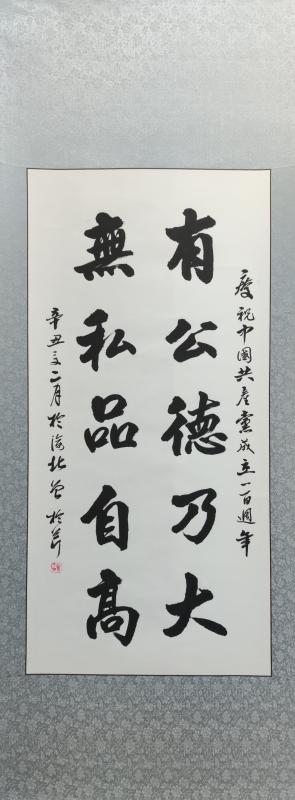 慶祝中國共產黨成立一百週年
有公德乃大
無私品自高
辛丑年二月於海北